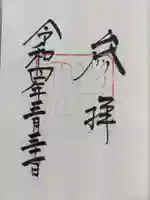 参拝
令和四年三月三十一日